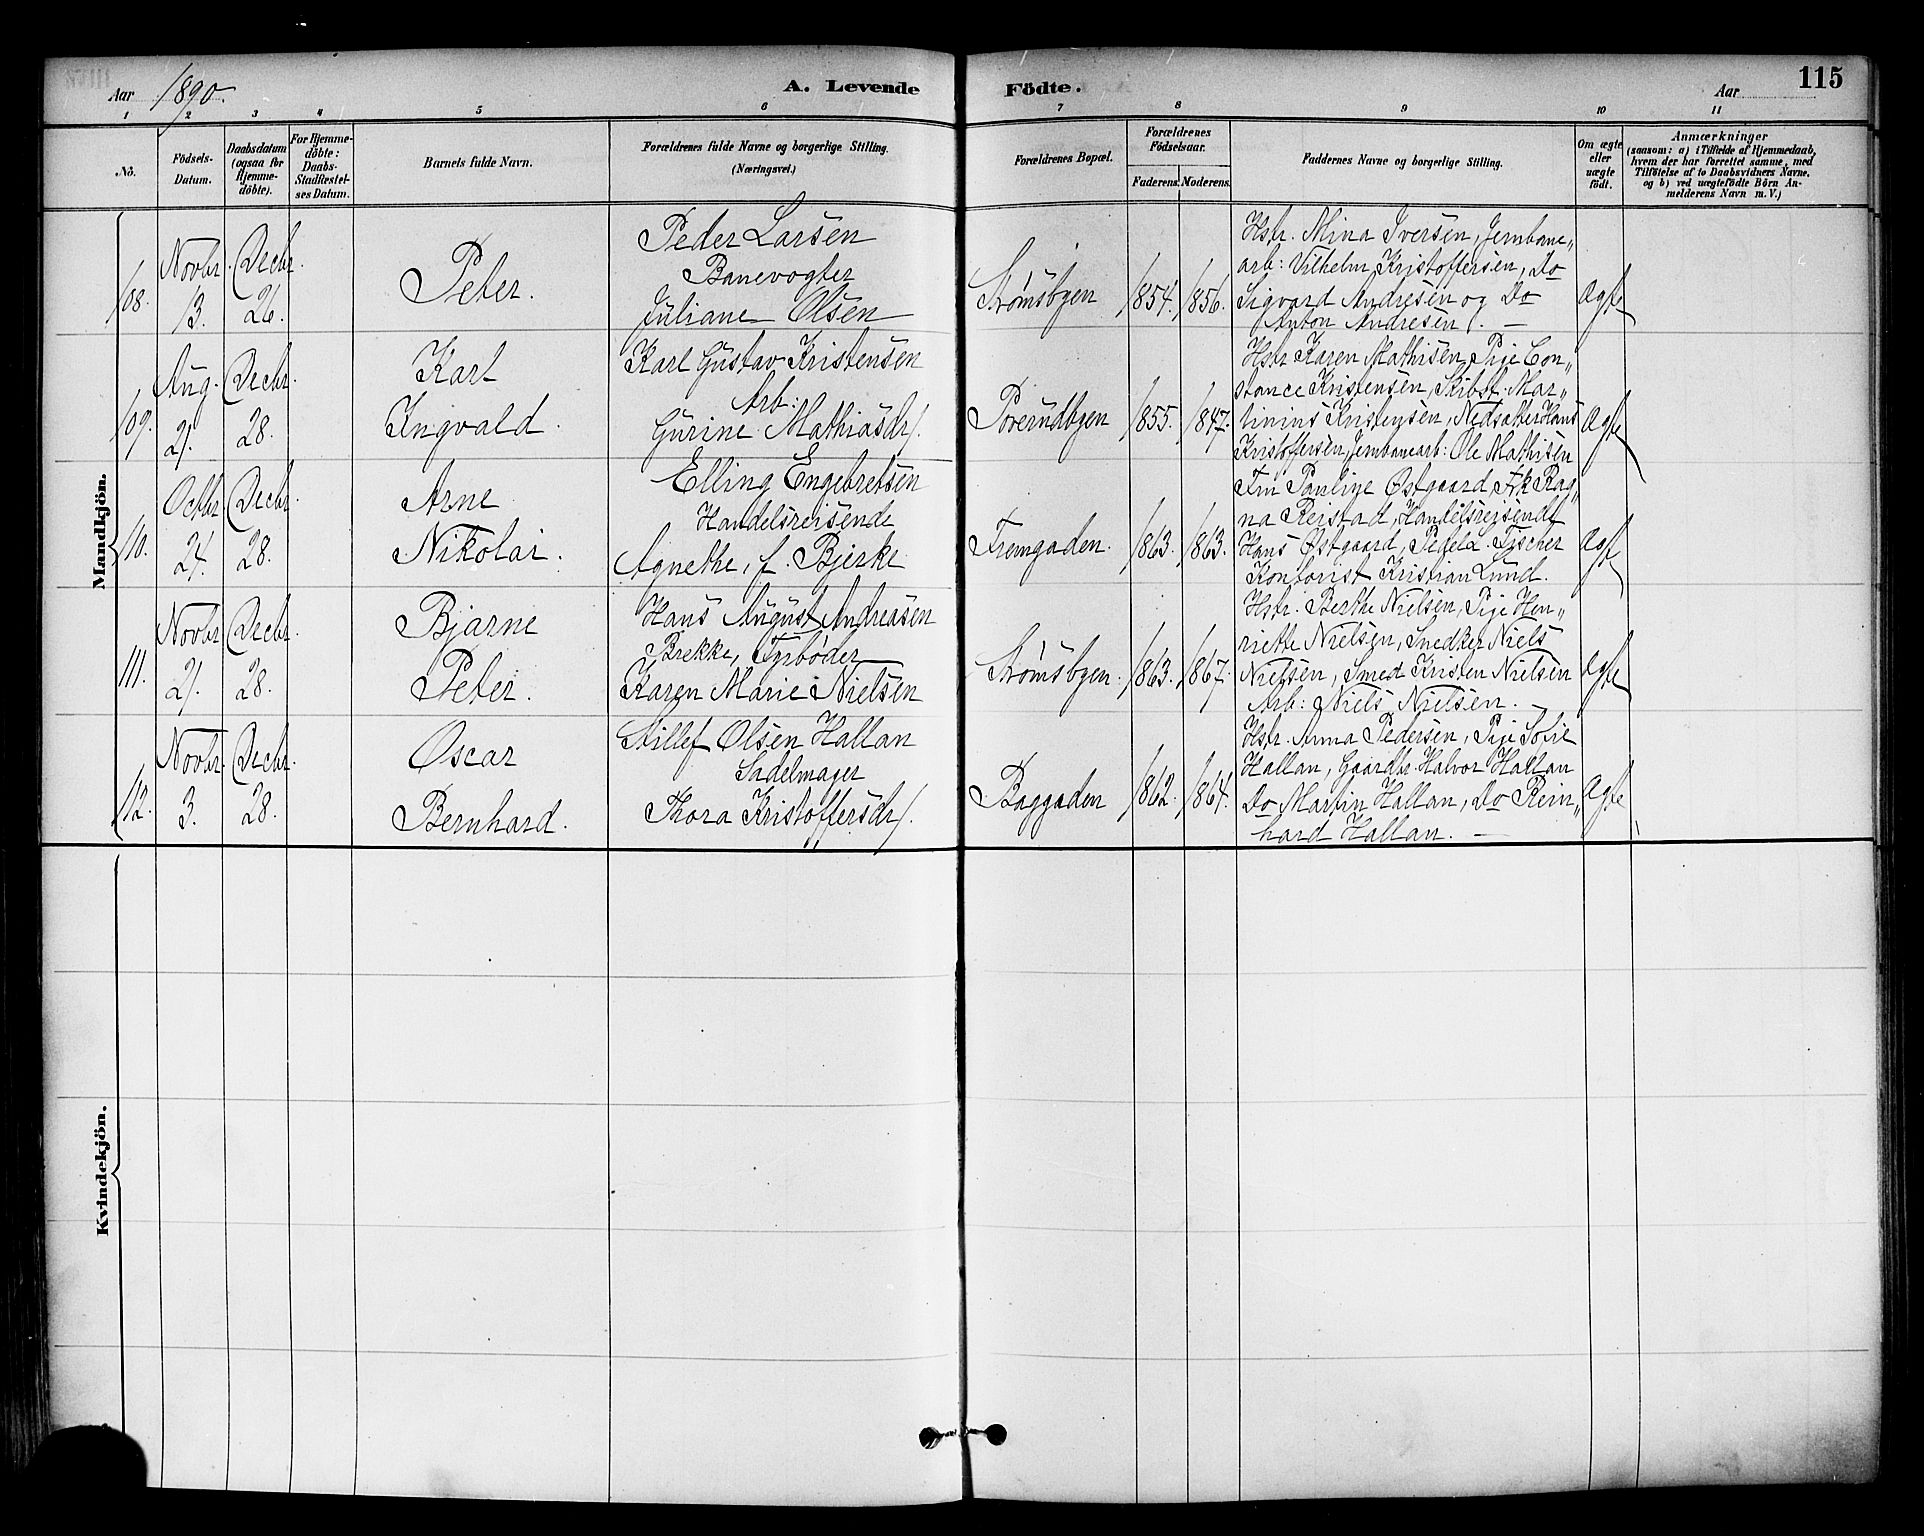 Aar 1890. A. Levende Födte. Aar 115
1 2 3 4 5 6 7 8 9 10 11
No.
Födsels-
Datum.
Daabsdatum
(ogsaa for
Hjemme-
döbte).
For Hjemme-
döbte:
Daabs-
Stadfæstel-
ses Datum.
Barnets fulde Navn.
Forældrenes fulde Navne og borgerlige Stilling.
(Næringsvei.)
Forældrenes Bopæl.
Forældrenes
Födselsaar.
Faderens. Moderens.
Faddernes Navne og borgerlige Stilling.
Om ægte
eller
uægte
födt.
Anmærkninger
(saasom: a) i Tilfælde af Hjemmedaab,
hvem der har forrettet samme, med
Tilföielse af to Daabsvidners Navne,
og b) ved uægtefödte Börn An-
melderens Navn m. V.)
Mandkjön.
108.
Novbr.
13.
Decbr.
26.
Peter.
Peder Larsen
Banevogter
Juliane Olsen
Strømsbyen
1854. 1856.
Hstr. Mina Iversen, Jernbane„
arb: Vilhelm Kristoffersen, Do
Sigvard Andresen og Do
Anton Andresen. —
Ægte
109.
Aug.
21.
Decbr.
28.
Karl
Ingvald.
Karl Gustav Kristensen
Arb:
Gurine Mathiasdr.
Porerudbyen
1855. 1847.
Hstr Karen Mathisen, Pige Con„
stance Kristensen, Skibst: Mar„
tinius Kristensen, Nedsatter Hans
Kristoffersen, Jernbanearb: Ole Mathisen
Ægte
110.
Octbr
24.
Decbr.
28.
Arne
Nikolai.
Elling Engebretsen
Handelsreisende
Agnethe, f. Bjerke
Fremgaden.
1863. 1863.
Fru Pauline Østgaard, Frk Rag„
na Reistad, Handelsreisende
Hans Østgaard, Fischer
Kontorist Kristian Lund.
Ægte
111.
Novbr
21.
Decbr.
28.
Bjarne
Peter.
Hans August Andreasen
Brekke, Fyrbøder
Karen Marie Nielsen
Strømsbyen.
1863. 1867.
Hstr. Berthe Nielsen, Pige Hen„
riette Nielsen, Snedker Niels
Nielsen, Smed Kristen Nielsen
Arb: Niels Nielsen. —
Ægte
112.
Novbr
3.
Decbr.
28.
Oscar
Bernhard.
Stillef Olsen Hallan
Sadelmager
Thora Kristoffersdr.
Baggaden
1862. 1864.
Hstr. Anna Pedersen, Pige Sofie
Hallan, Gaardbr. Halvor Hallan
Do Martin Hallan, Do Rein„
hard Hallan. —
Ægte
Kvindekjön.